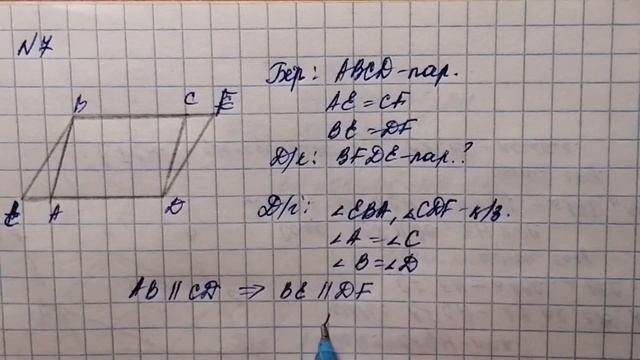 N7
Бер: ABCD-пар.
AE = CF
BE = DF
Д/к: BFDE-пар.?
Д/і: ∠EBA, ∠CDF-
∠A = ∠C
∠B = ∠D
AB || CD ⇒ BE || DF
B C F
E A D